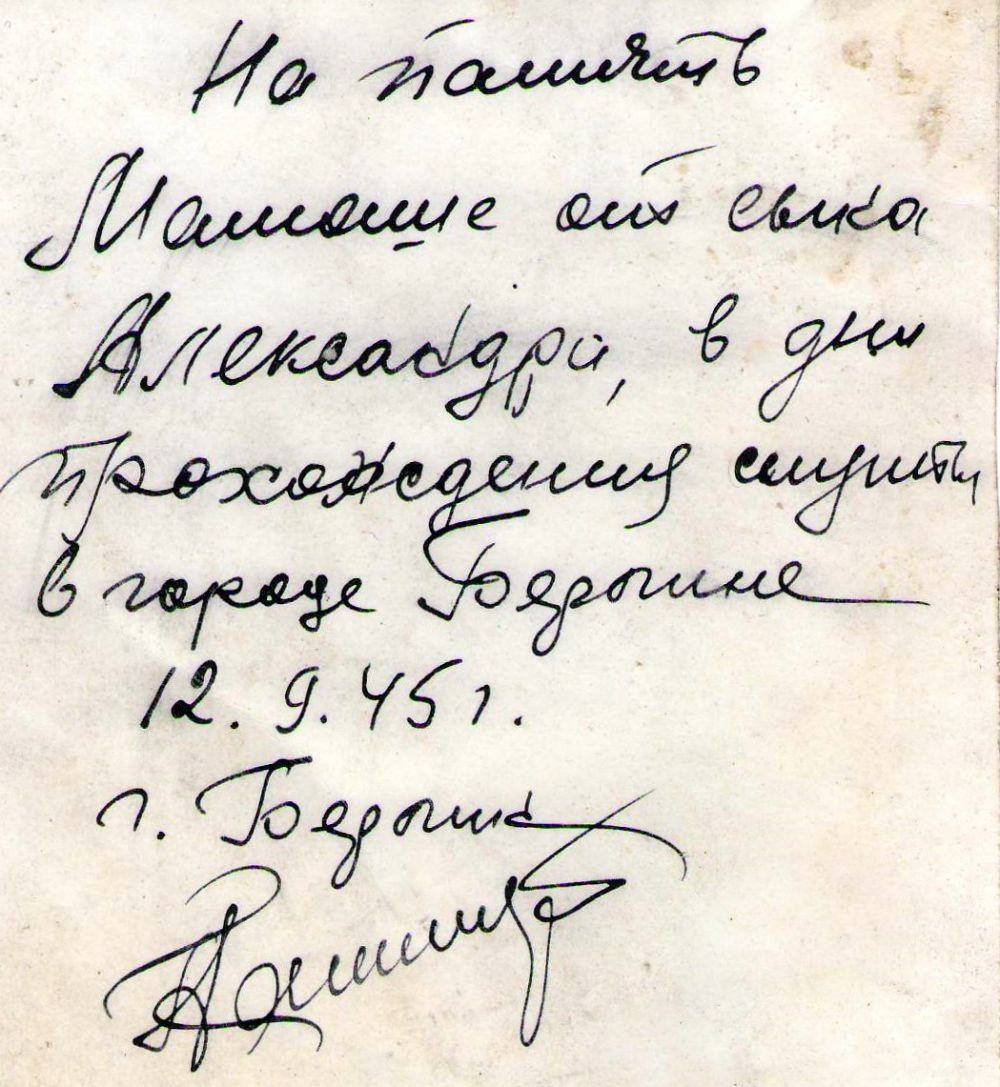 На память
Мамаше от сына
Александра, в дни
прохождения службы
в городе Бердычине
12. 9. 45 г.
г. Бердычин